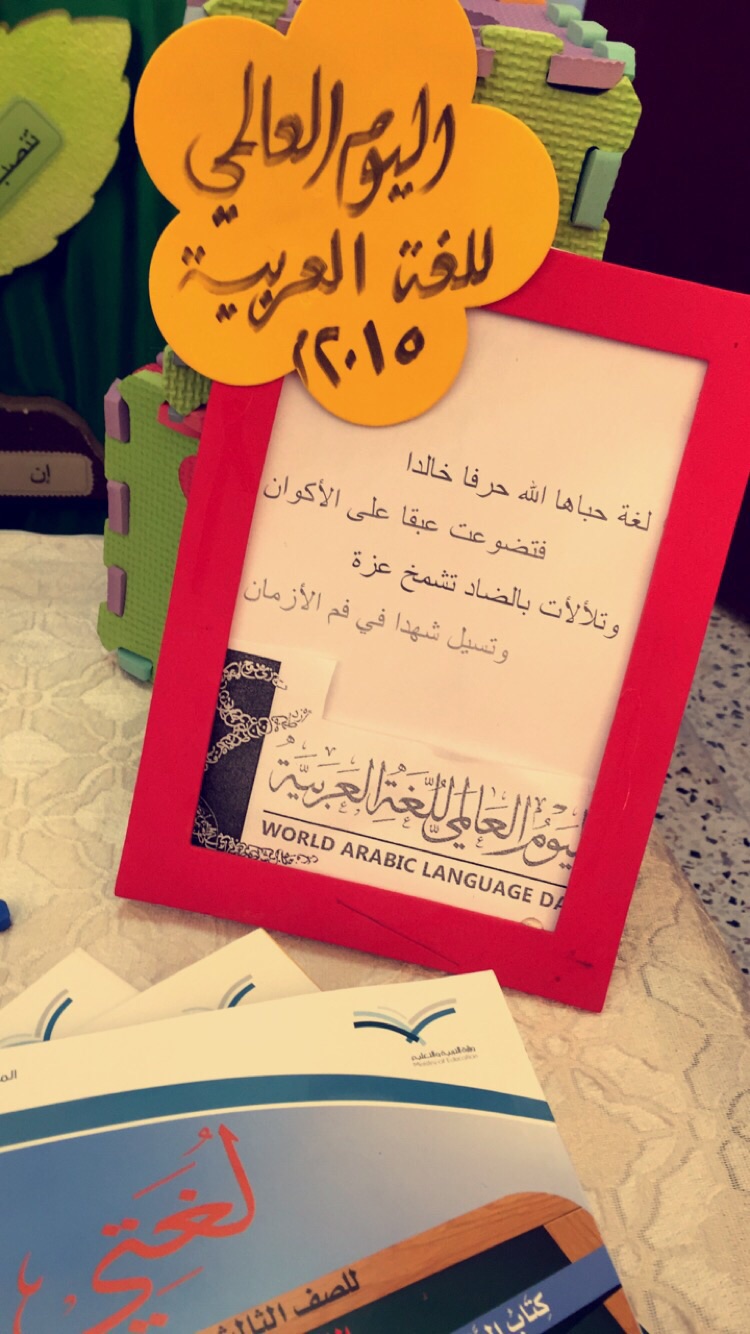 اليوم العالمي
للغة العربية
٢٠١٥م
لغة حباها الله حرفا خالدا
فتضوعت عبقا على الأكوان
وتلألأت بالضاد تشمخ عزة
وتسيل شهدا في فم الأزمان
اليَومُ العَالمي للُّغَةِ العَرَبيَّةِ
WORLD ARABIC LANGUAGE DA
إن
تنصب
وزارة التربية والتعليم
Ministry of Education
لُغتي
للصف الثالث
كِتَابُ